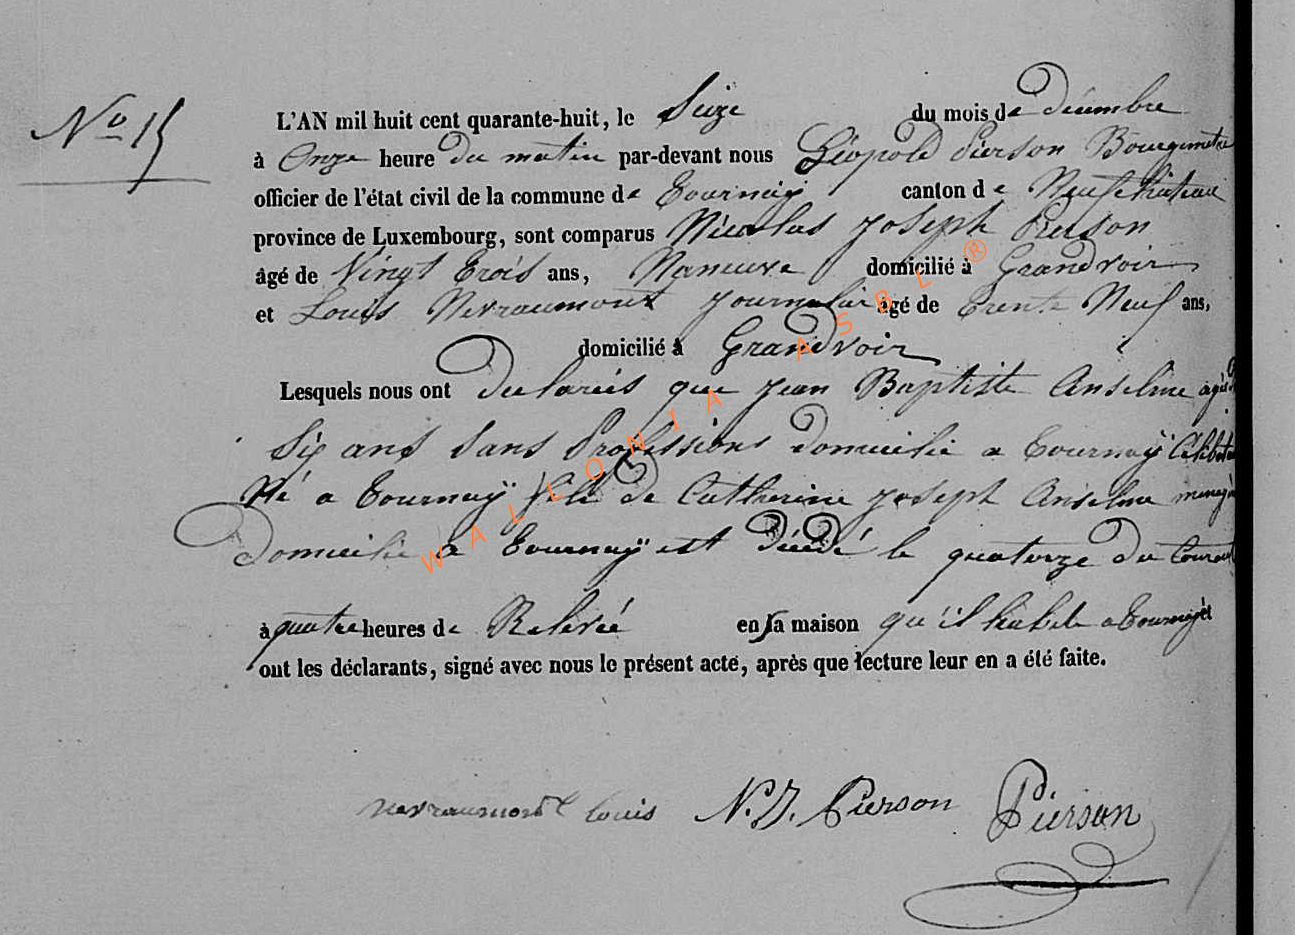 No 15
L'AN mil huit cent quarante-huit, le Seize du mois de décembre
à Onze heure du matin par-devant nous Léopold Pierson Bourgmetre
officier de l'état civil de la commune de Tournay canton de Neufchateau
province de Luxembourg, sont comparus Nicolas Joseph Pierson
âgé de Vingt Trois ans, Maneuvre domicilié à Grandvoir
et Louis Nevraumont Journalier âgé de Trente Neuf ans,
domicilié à Grandvoir
Lesquels nous ont declarés que Jean Baptiste Anselme agé de
Six ans Sans Professions domicilié a Tournaÿ Célibataire
Né a Tournaÿ fils de Catherine Joseph Anselme menagère
Domicilié a Tournaÿ est décédé le quatorze du Courant
à quatre heures de Relevée en sa maison qu'il habite a Tournay et
ont les déclarants, signé avec nous le présent acte, après que lecture leur en a été faite.
Nevraumont Louis N. J. Pierson Pierson
WALLONIA ASBL ®